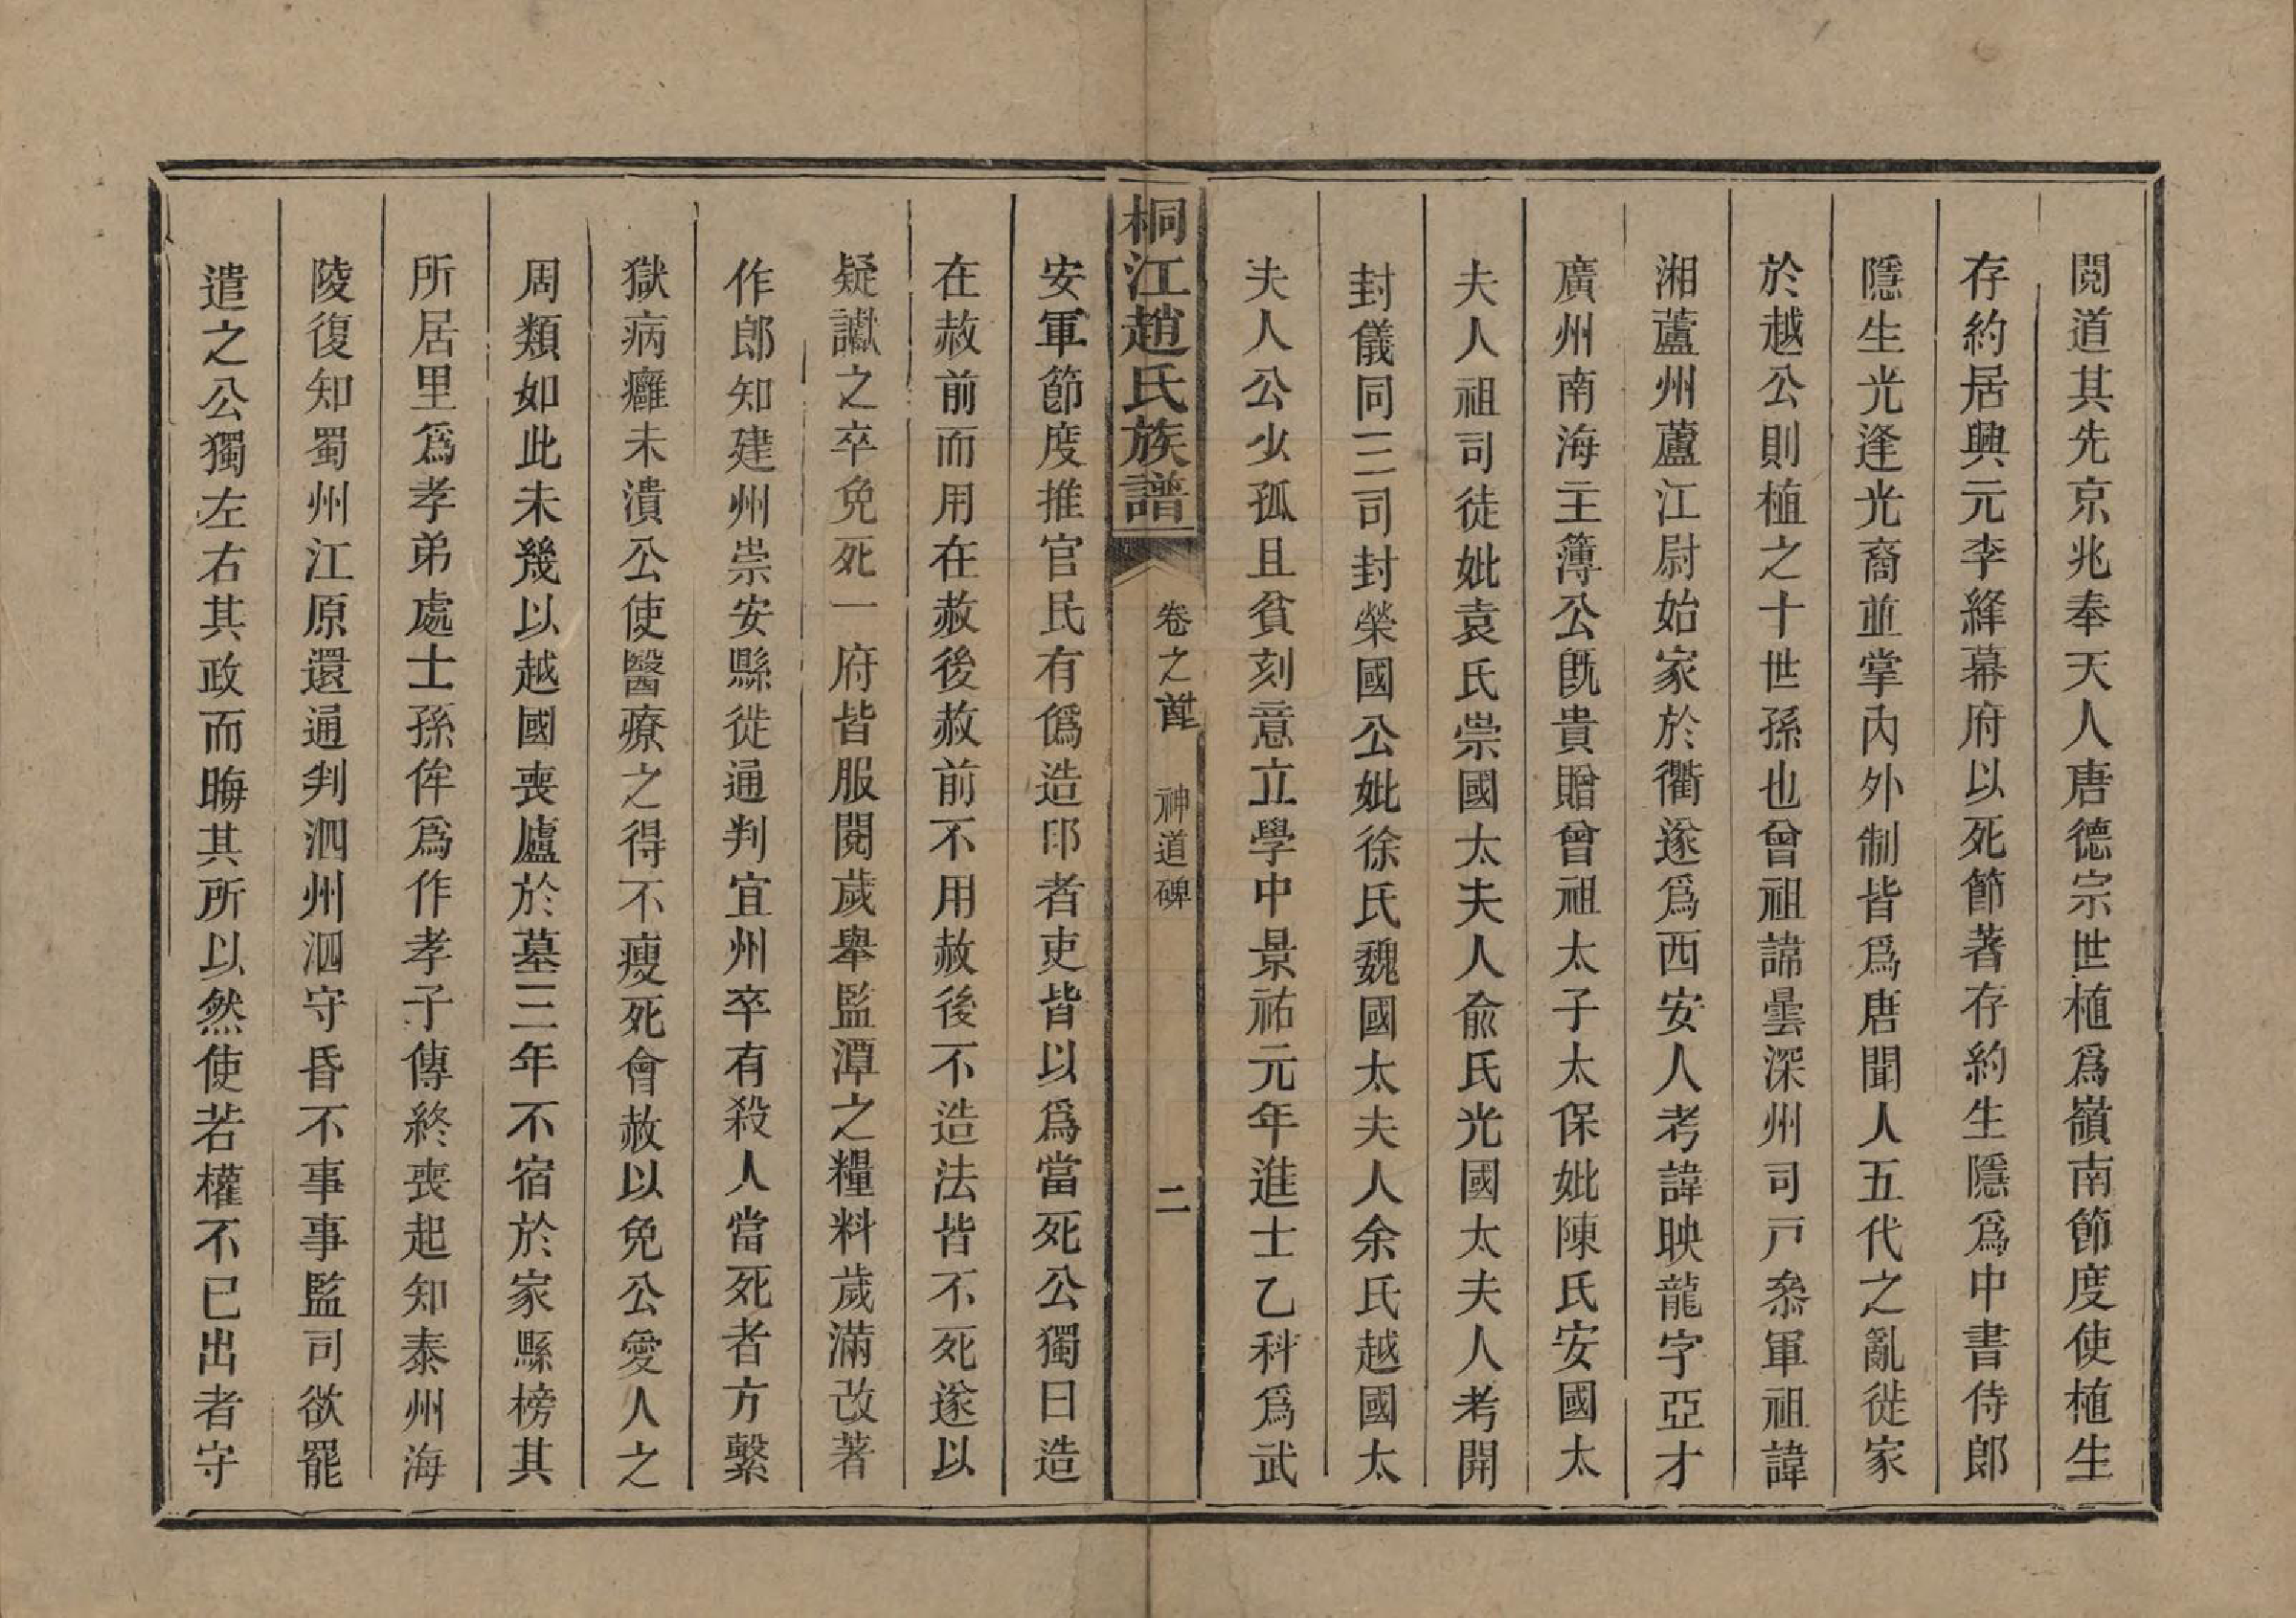 閱道其先京兆奉天人唐德宗世植爲嶺南節度使植生
存約居興元李絳幕府以死節著存約生隱爲中書侍郎
隱生光逢光裔並掌內外制皆爲唐聞人五代之亂徙家
於越公則植之十世孫也曾祖諱曇深州司戸叅軍祖諱
湘蘆州蘆江尉始家於衢遂爲西安人考諱映龍字亞才
廣州南海主簿公旣貴贈曾祖太子太保妣陳氏安國太
夫人祖司徒妣袁氏崇國太夫人俞氏光國太夫人考開
封儀同三司封榮國公妣徐氏魏國太夫人余氏越國太
夫人公少孤且貧刻意立學中景祐元年進士乙科爲武
桐江趙氏族譜 卷之首 神道碑 二
安軍節度推官民有僞造印者吏皆以爲當死公獨曰造
在赦前而用在赦後赦前不用赦後不造法皆不死遂以
疑讞之卒免死一府皆服閱歲舉監潭之糧料歲滿改著
作郎知建州崇安縣徙通判宜州卒有殺人當死者方繫
獄病癰未潰公使醫療之得不瘦死會赦以免公愛人之
周類如此未幾以越國喪廬於墓三年不宿於家縣榜其
所居里爲孝弟處士孫侔爲作孝子傳終喪起知泰州海
陵復知蜀州江原還通判泗州泗守昏不事事監司欲罷
遣之公獨左右其政而晦其所以然使若權不已出者守